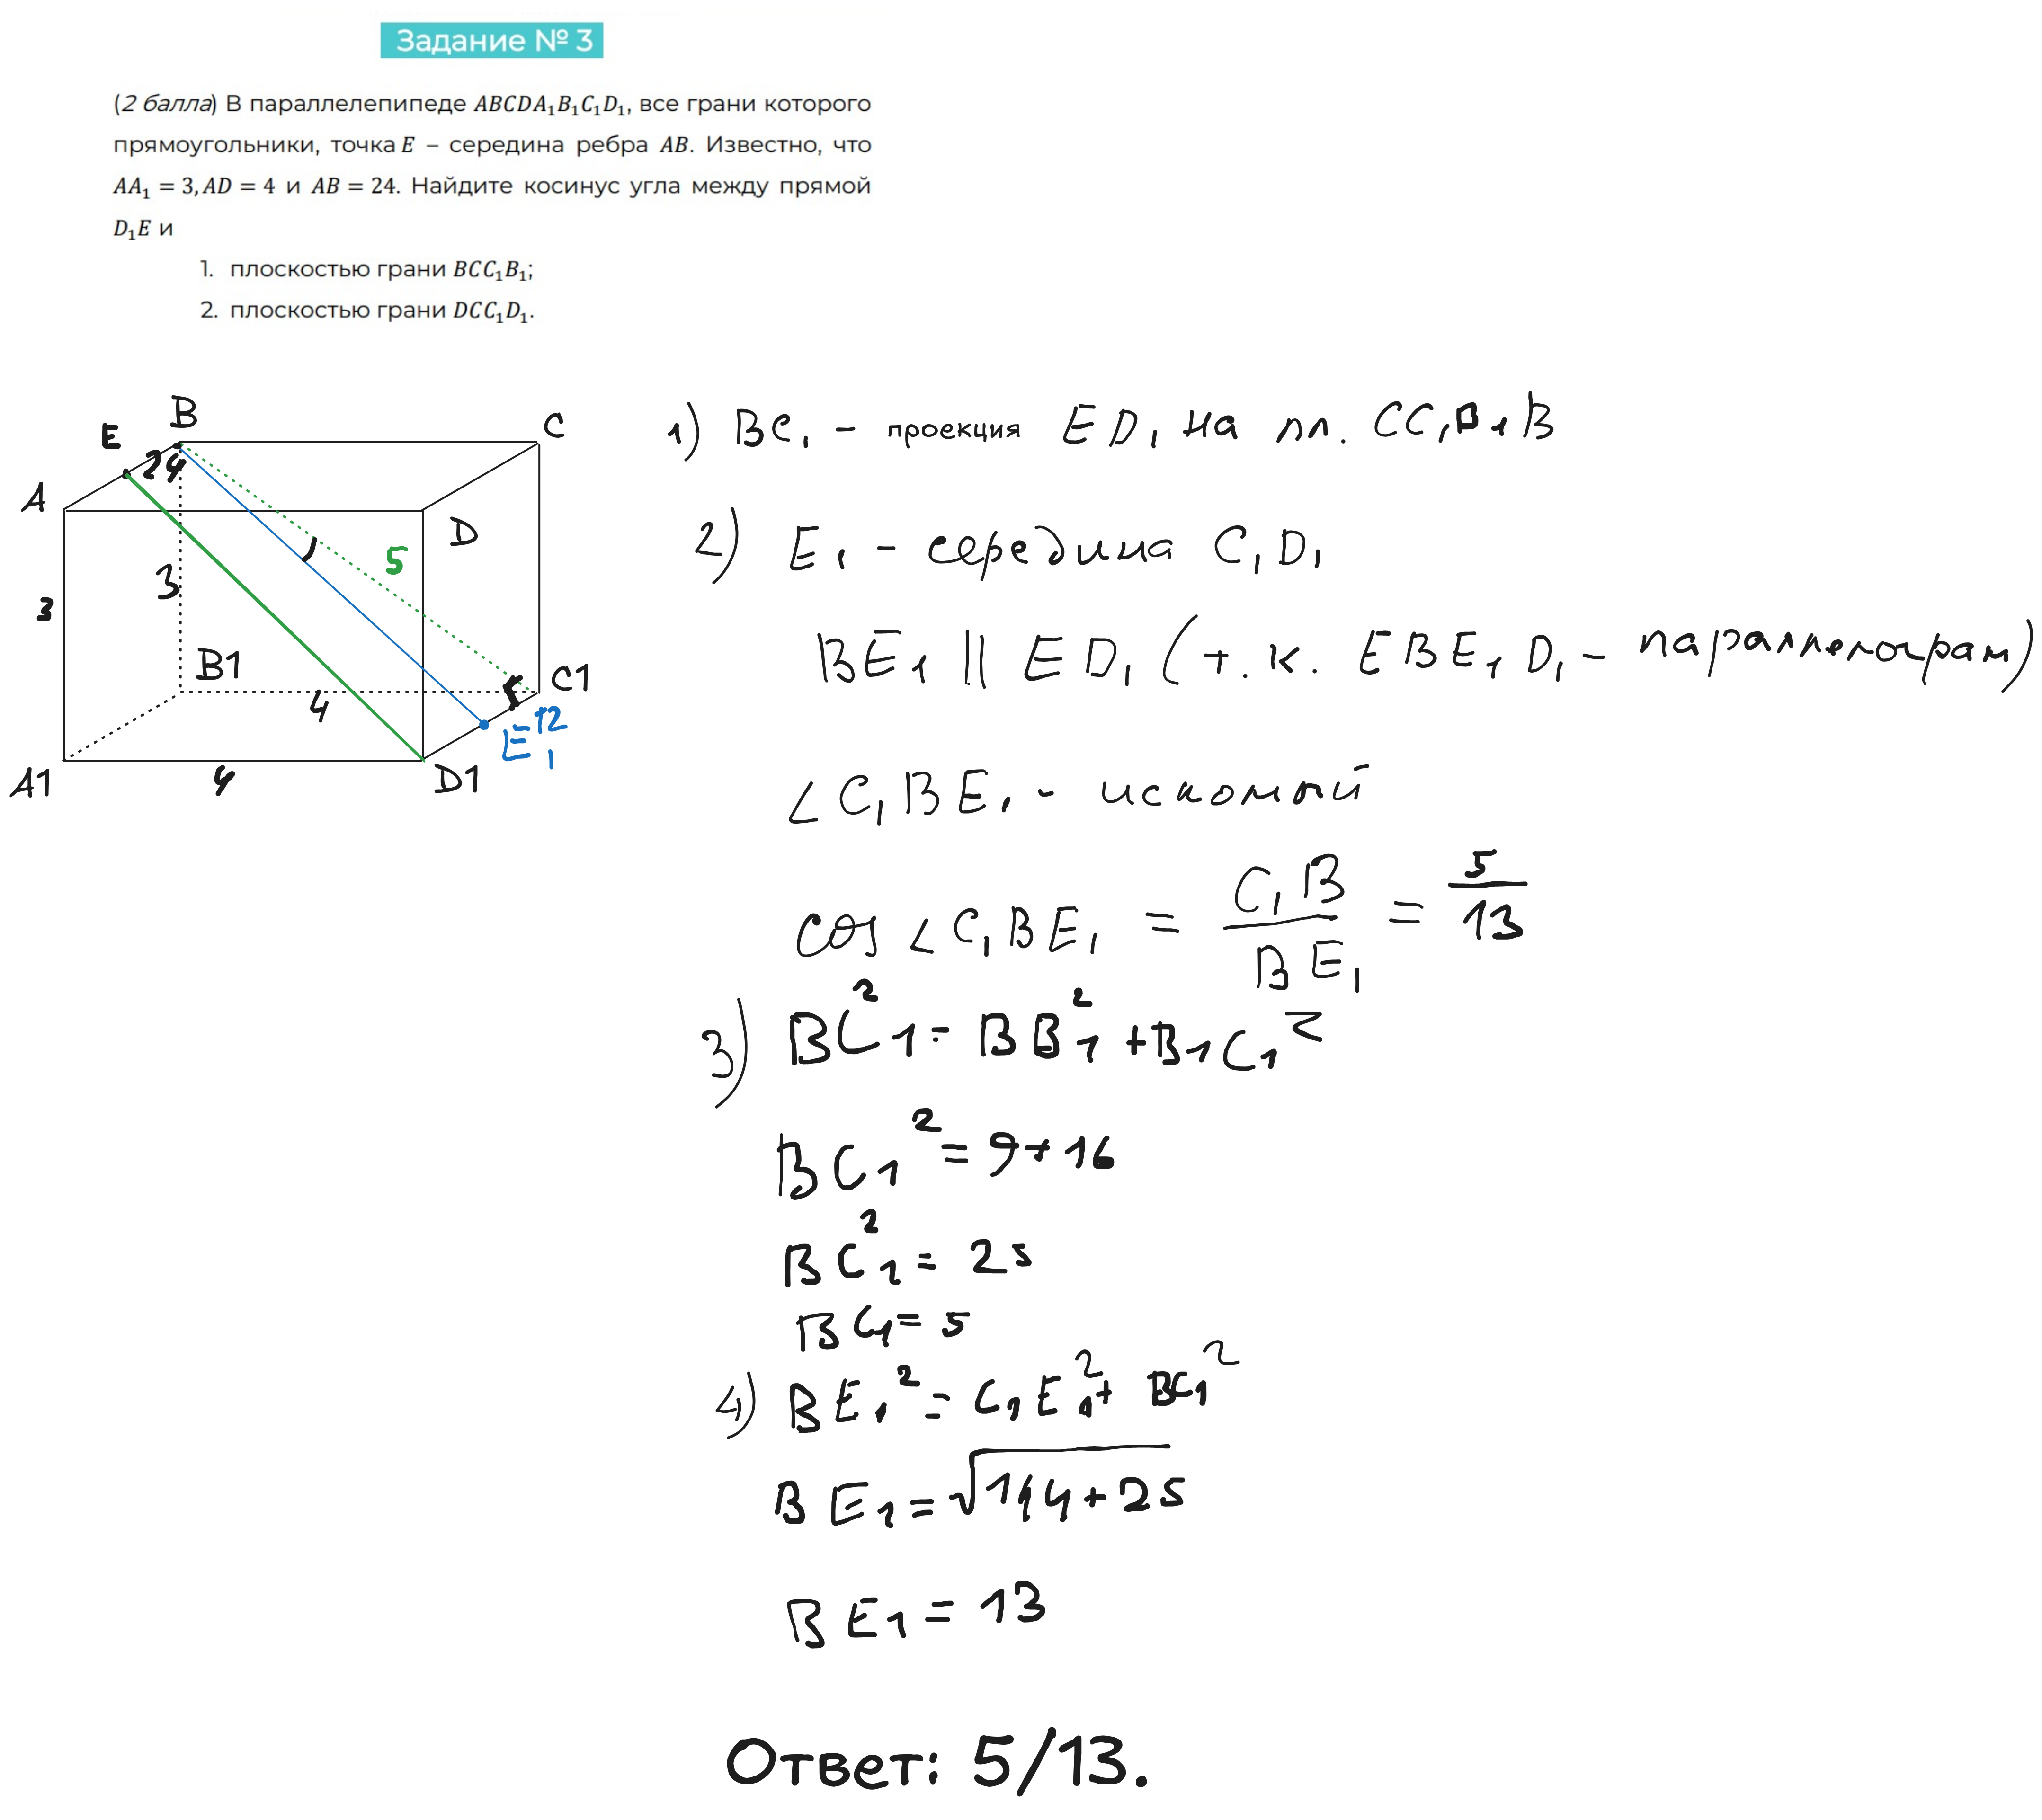 Задание № 3
(2 балла) В параллелепипеде ABCDA₁B₁C₁D₁, все грани которого
прямоугольники, точка E – середина ребра AB. Известно, что
AA₁ = 3, AD = 4 и AB = 24. Найдите косинус угла между прямой
D₁E и
1. плоскостью грани BCC₁B₁;
2. плоскостью грани DCC₁D₁.
B
C
E
24
A
D
5
3
3
B1
C1
4
12
E₁
A1
4
D1
1) BC₁ - проекция ED₁ на пл. CC₁B₁B
2) E₁ - середина C₁D₁
BE₁ || ED₁ (т.к. EBE₁D₁ - параллелограм)
∠C₁BE₁ - искомый
cos ∠C₁BE₁ = C₁B / BE₁ = 5/13
3) BC₁² = BB₁² + B₁C₁²
BC₁² = 9+16
BC₁² = 25
BC₁ = 5
4) BE₁² = C₁E₁² + BC₁²
BE₁ = √144+25
BE₁ = 13
Ответ: 5/13.